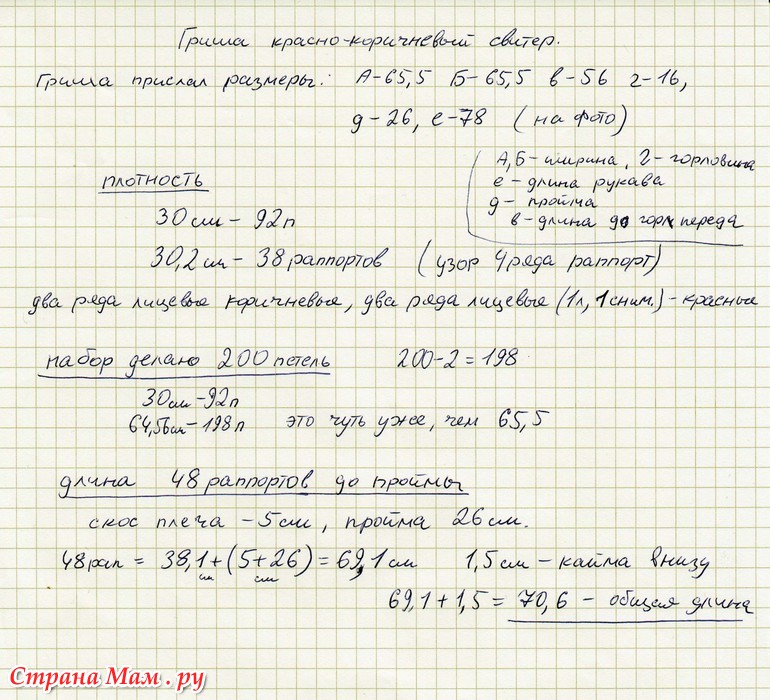 Гриша красно-коричневый свитер.
Гриша прислал размеры: А-65,5 Б-65,5 в-56 г-16,
д-26, е-78 (на фото)
А,Б-ширина, Г-горловина
е-длина рукава
д-пройма
в-длина до горл переда
плотность
30 см - 92 п
30,2 см - 38 раппортов (узор 4 ряда раппорт)
два ряда лицевые коричневые, два ряда лицевые (1л, 1 сним.) - красные
набор делаю 200 петель 200-2=198
30 см - 92 п
64,56 см - 198 п это чуть уже, чем 65,5
длина 48 раппортов до проймы
скос плеча - 5 см, пройма 26 см.
48 рап = 38,1 + (5+26) = 69,1 см 1,5 см - кайма внизу
см см
69,1 + 1,5 = 70,6 - общая длина
Страна Мам.ру